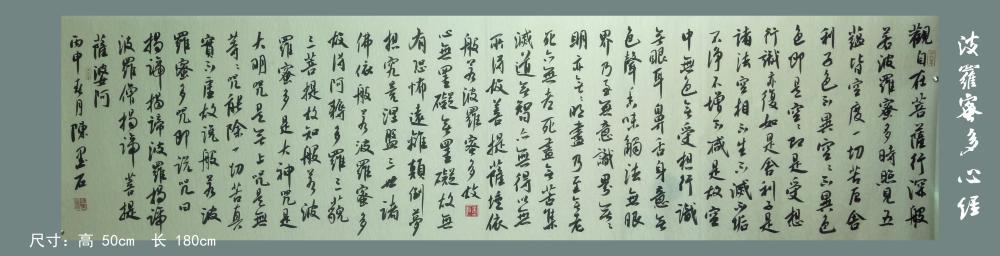 波羅蜜多心經
觀自在菩薩行深般
若波羅蜜多時照見五
蘊皆空度一切苦厄舍
利子色不異空〻不異色
色即是空〻即是受想
行識亦復如是舍利子是
諸法空相不生不滅不垢
不淨不增不減是故空
中無色無受想行識
無眼耳鼻舌身意無
色聲香味觸法無眼
界乃至無意識界無〻
明亦無明盡乃至無老
死亦無老死盡無苦集
滅道無智亦無得以無
所得故菩提薩埵依
般若波羅蜜多故
心無罣礙無罣礙故無
有恐怖遠離顛倒夢
想究竟涅盤三世諸
佛依般若波羅蜜多
故得阿耨多羅三藐
三菩提故知般若波
羅蜜多是大神咒是
大明咒是無上咒是無
等〻咒能除一切苦真
實不虛故說般若波
羅蜜多咒即說咒曰
揭諦揭諦波羅揭諦
波羅僧揭諦菩提
薩婆阿
丙申月陳墨石
尺寸：高 50cm 长 180cm